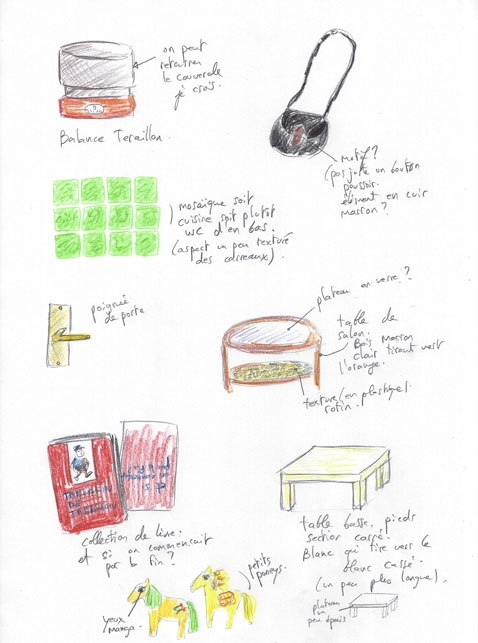 on peut
retourner
le couvercle
je crois.
Balance Teraillon.
motif ?
(pas juste un bouton
poussoir.
élément en cuir
marron ?
mosaïque soit
cuisine soit plutôt
wc d'en bas.
(aspect un peu texturé
des carreaux).
poignée
de porte
plateau en verre ?
table de
salon.
Bois marron
clair tirant vers
l'orange.
texture/en plastique/
rotin.
collection de livre:
et si on commencait
par la fin ?
table basse, pieds
section carré.
Blanc qui tire vers le
blanc cassé.
(un peu plus longue).
plateau
un
peu épais
petits
poneys.
yeux
manga.